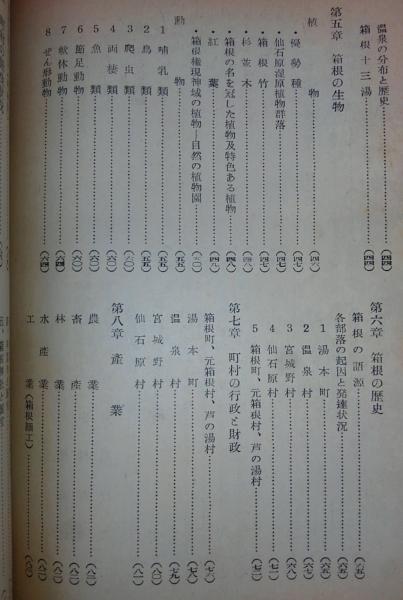 温泉の分布と歴史……(四四)
箱根十三湯……(四四)
第五章 箱根の生物
植物……(四六)
・優勢種……(四七)
・仙石原湿原植物群落……(四七)
・箱根竹……(四七)
・杉並木……(四七)
・箱根の名を冠した植物及特色ある植物……(四八)
・紅葉……(四九)
・箱根権現神域の植物―自然の植物園……
動物……(五五)
1 哺乳類……(五五)
2 鳥類……(五五)
3 爬虫類……(六〇)
4 両棲類……(六〇)
5 魚類……(六〇)
6 節足動物……(六〇)
7 軟体動物……(六四)
8 ぜん形動物……(六四)
第六章 箱根の歴史
箱根の語源……(六五)
各部落の起因と発達状況……(六五)
1 湯本町……(六五)
2 温泉村……
3 宮城野村……(六八)
4 仙石原村……(七〇)
5 箱根町、元箱根村、芦の湯村……(七二)
第七章 町村の行政と財政
箱根町、元箱根村、芦の湯村……(七六)
湯本町……(七八)
温泉村……(七九)
宮城野村……(八〇)
仙石原村……(八一)
第八章 産業
農業……(八二)
畜産……(八二)
林業……
水産業……
工業(箱根細工)……